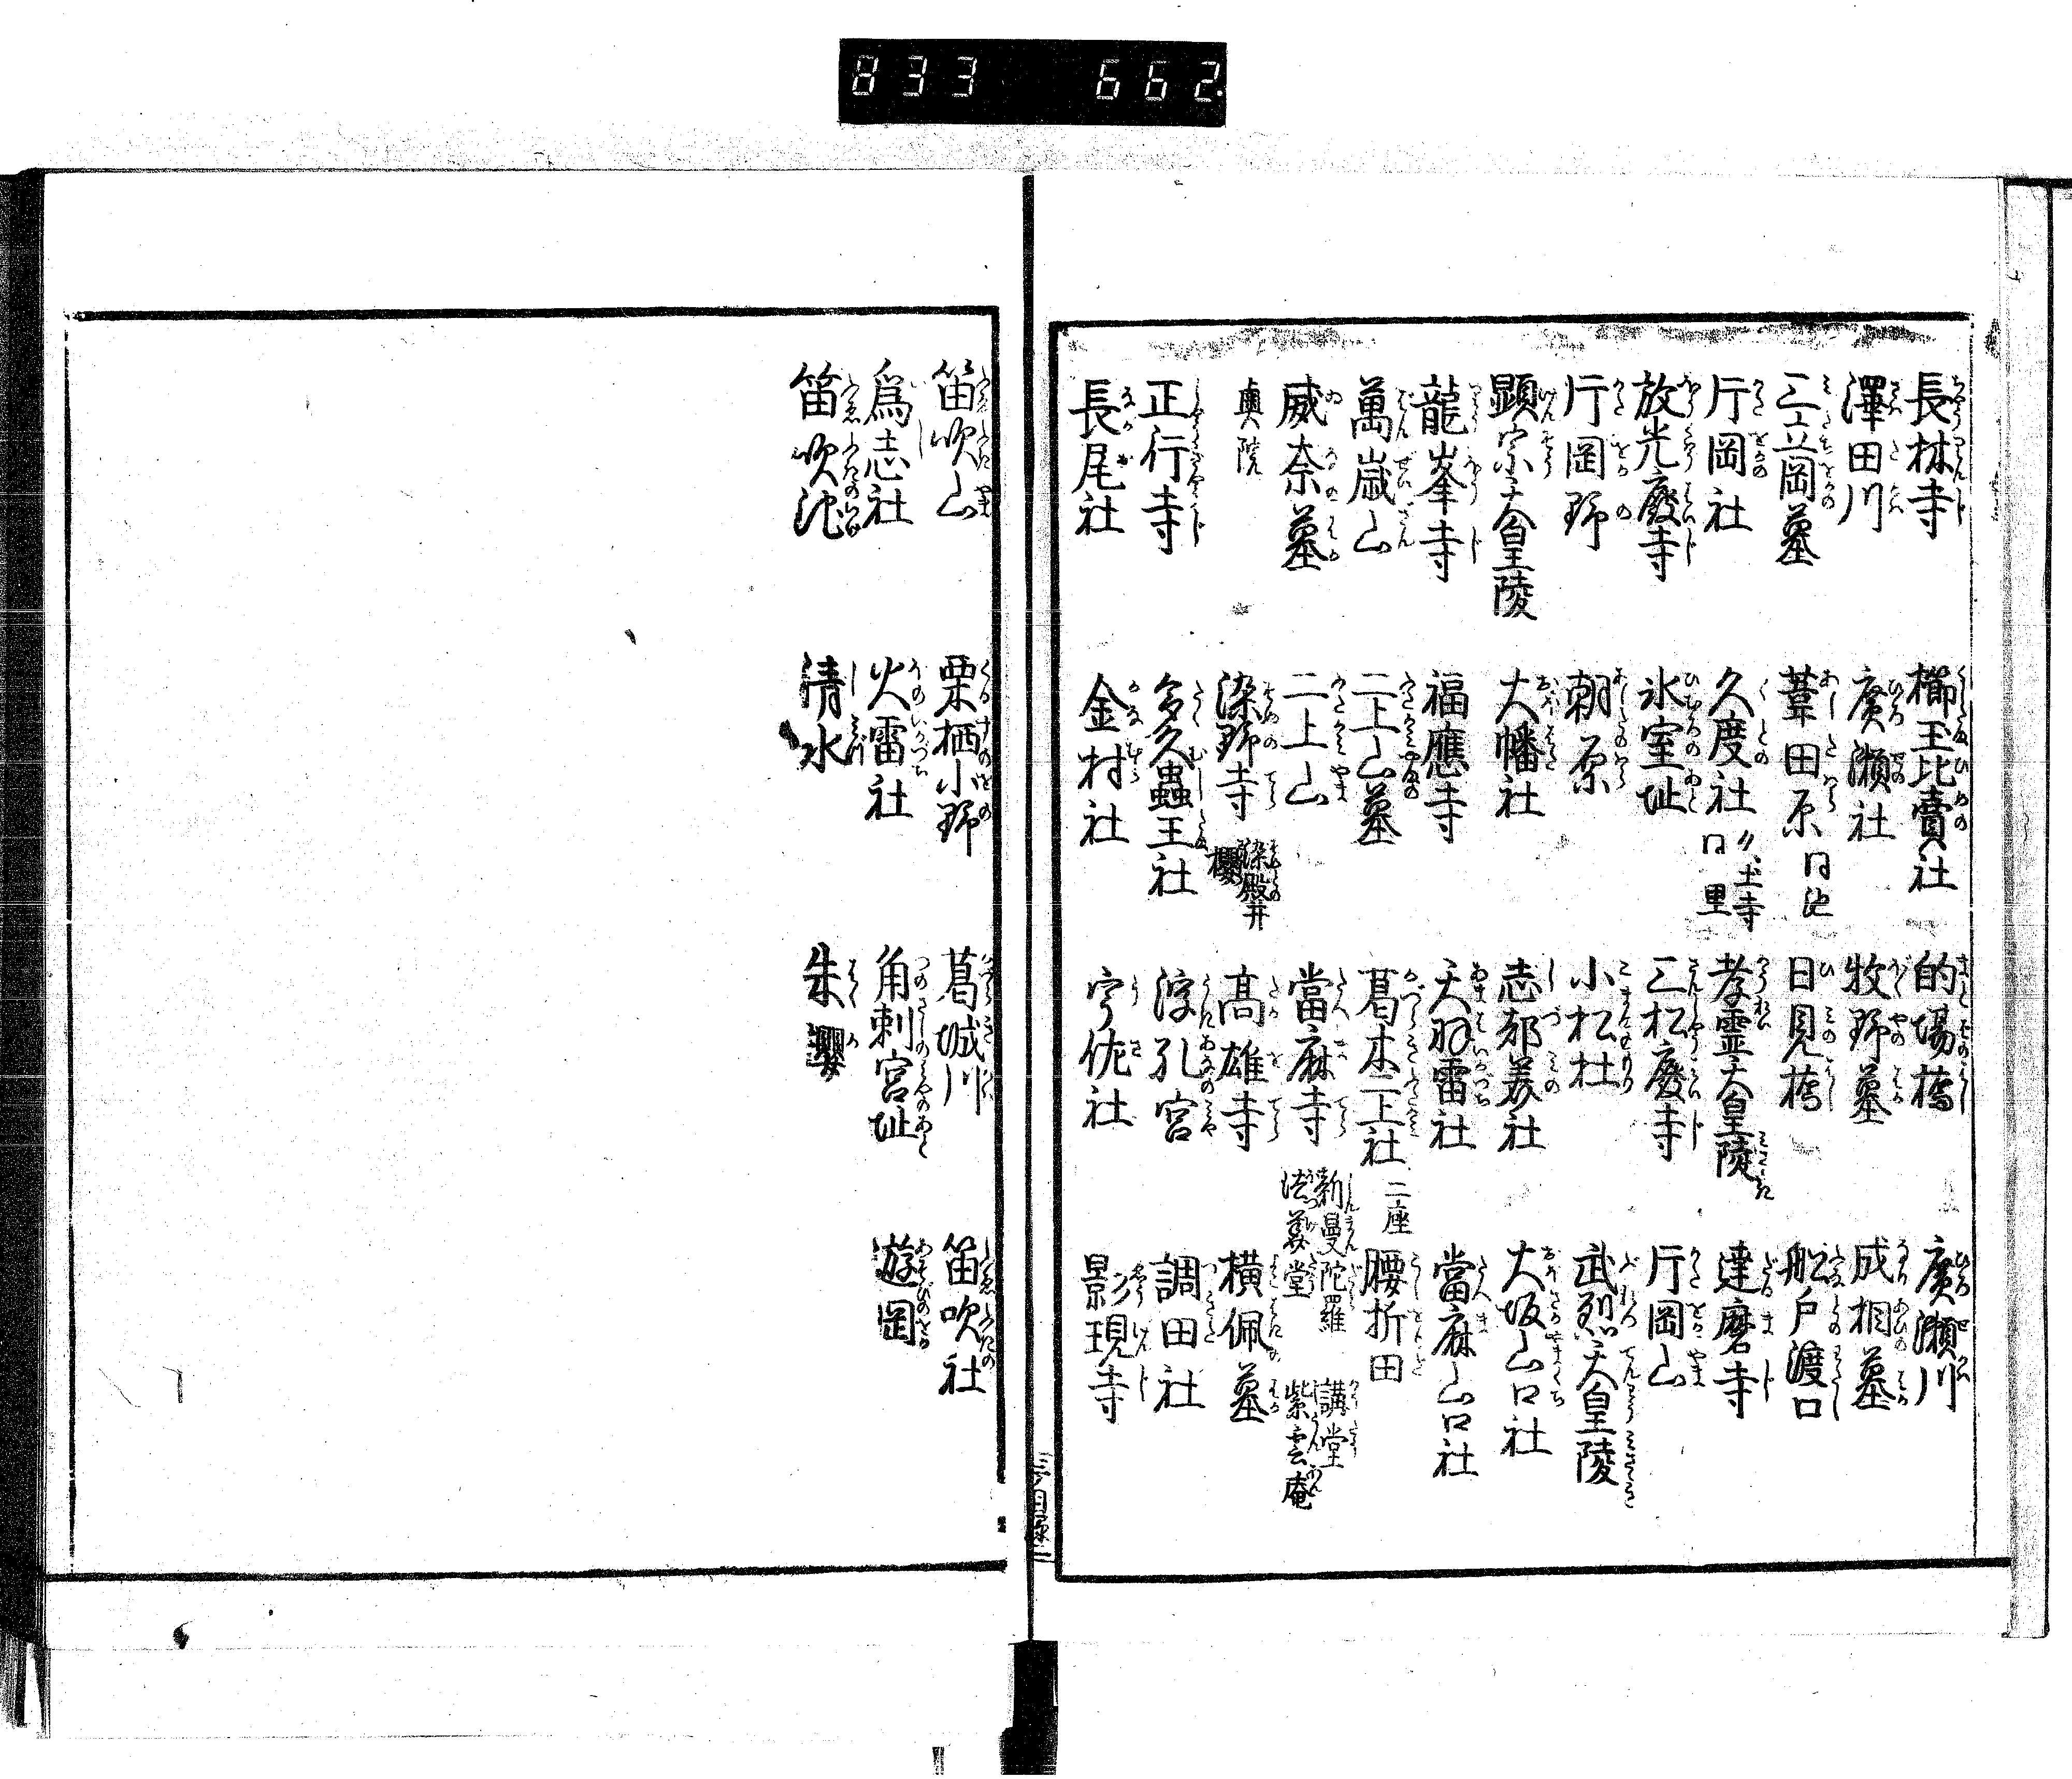 833 662.
長林寺 櫛玉比賣社 的場橋 廣瀬川
澤田川 廣瀬社 牧野墓 成相墓
三立岡墓 葦田原 同池 日見橋 舩戸渡口
片岡社 久度社 久土寺 同里 孝霊天皇陵 達磨寺
放光廢寺 氷室址 三松廢寺 片岡山
片岡野 朝原 小松杜 武烈天皇陵
顕宗天皇陵 大幡社 志都美社 大坂山口社
龍峯寺 福應寺 天羽雷社 當麻山口社
萬歳山 二上山墓 葛木二上社 二座 腰折田
威奈墓 二上山 當麻寺 新曼陀羅 講堂 法華堂 紫雲庵
奥院 染野寺 染殿井 櫻 高雄寺 横佩墓
正行寺 多久蟲玉社 浮孔宮 調田社
長尾社 金村社 宇佐社 影現寺
三ノ目录二
笛吹山 栗栖小野 葛城川 笛吹社
為志社 火雷社 角刺宮址 遊岡
笛吹池 清水 朱櫻